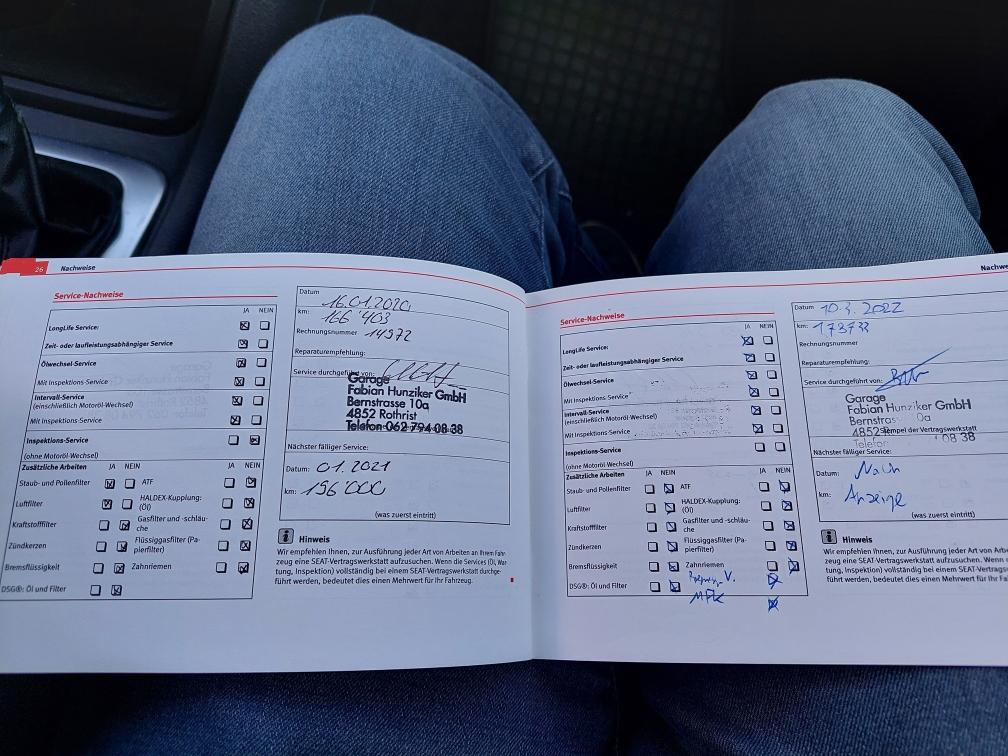 26 Nachweise
Service-Nachweise
JA NEIN
LongLife Service:
Zeit- oder laufleistungsabhängiger Service
Ölwechsel-Service
Mit Inspektions-Service
Intervall-Service
(einschließlich Motoröl-Wechsel)
Mit Inspektions-Service
Inspektions-Service
(ohne Motoröl-Wechsel)
Zusätzliche Arbeiten JA NEIN JA NEIN
Staub- und Pollenfilter ATF
Luftfilter HALDEX-Kupplung: (Öl)
Kraftstofffilter Gasfilter und -schläu-
che
Zündkerzen Flüssiggasfilter (Pa-
pierfilter)
Bremsflüssigkeit Zahnriemen
DSG®: Öl und Filter
Datum 16.01.2020
km: 166'403
Rechnungsnummer 14972
Reparaturempfehlung:
Service durchgeführt von:
Garage
Fabian Hunziker GmbH
Bernstrasse 10a
4852 Rothrist
Telefon 062 794 08 38
Nächster fälliger Service:
Datum: 01.2021
km: 196'000
(was zuerst eintritt)
Hinweis
Wir empfehlen Ihnen, zur Ausführung jeder Art von Arbeiten an Ihrem Fahr-
zeug eine SEAT-Vertragswerkstatt aufzusuchen. Wenn die Services (Öl, War-
tung, Inspektion) vollständig bei einem SEAT-Vertragswerkstatt durchge-
führt werden, bedeutet dies einen Mehrwert für Ihr Fahrzeug.
Nachwe
Service-Nachweise
JA NEIN
LongLife Service:
Zeit- oder laufleistungsabhängiger Service
Ölwechsel-Service
Mit Inspektions-Service
Intervall-Service
(einschließlich Motoröl-Wechsel)
Mit Inspektions-Service
Inspektions-Service:
(ohne Motoröl-Wechsel)
Zusätzliche Arbeiten JA NEIN JA NEIN
Staub- und Pollenfilter ATF
Luftfilter HALDEX-Kupplung:
(Öl)
Kraftstofffilter Gasfilter und -schläu-
che
Zündkerzen Flüssiggasfilter (Pa-
pierfilter)
Bremsflüssigkeit Zahnriemen
DSG®: Öl und Filter
MFK
Datum 10.3.2022
km: 173733
Rechnungsnummer
Reparaturempfehlung:
Service durchgeführt von:
Garage
Fabian Hunziker GmbH
Bernstras 0a
4852 Stempel der Vertragswerkstatt
Telefon 08 38
Nächster fälliger Service:
Datum: Nach
km: Anzeige
(was zuerst eintritt)
Hinweis
Wir empfehlen Ihnen, zur Ausführung jeder Art von Arbeiten an
zeug eine SEAT-Vertragswerkstatt aufzusuchen. Wenn die Services
tung, Inspektion) vollständig bei einem SEAT-Vertragswerkst
führt werden, bedeutet dies einen Mehrwert für Ihr Fa